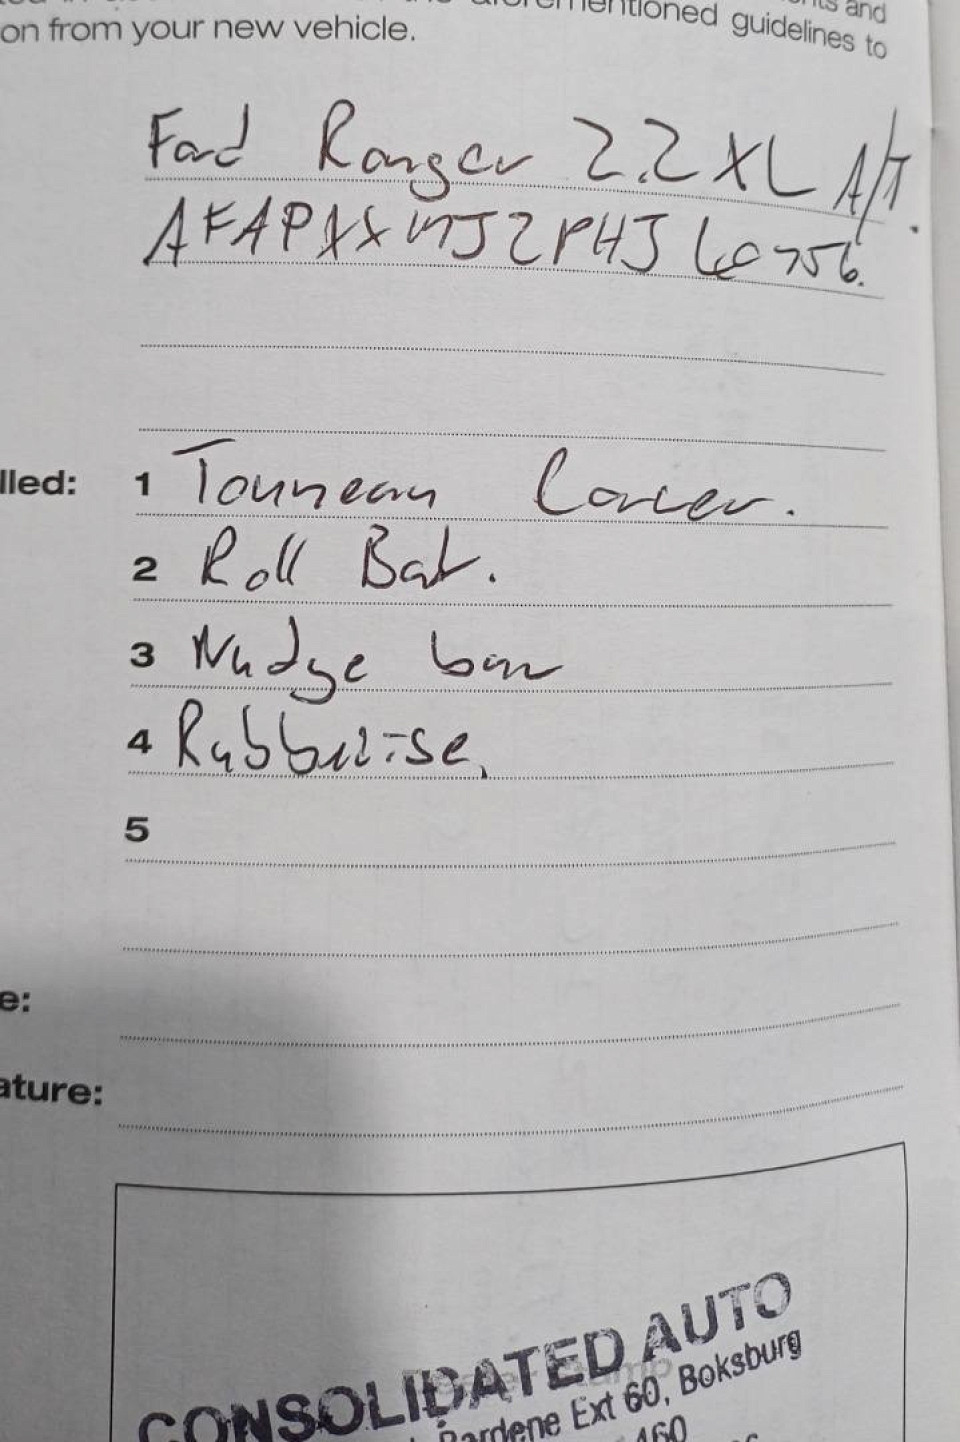 and
mentioned guidelines to
on from your new vehicle.
Ford Ranger 2.2 XL A/T.
AFAPXXMJ2PHJ60756.
lled: 1 Tonneau Cover.
2 Roll Bar.
3 Nudge bar
4 Rubberise.
5
e:
ature:
CONSOLIDATED AUTO
Bardene Ext 60, Boksburg
460